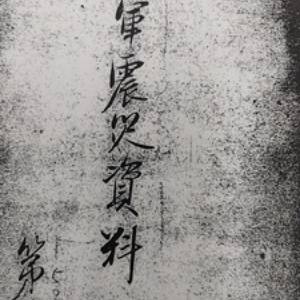 軍震災資料
第